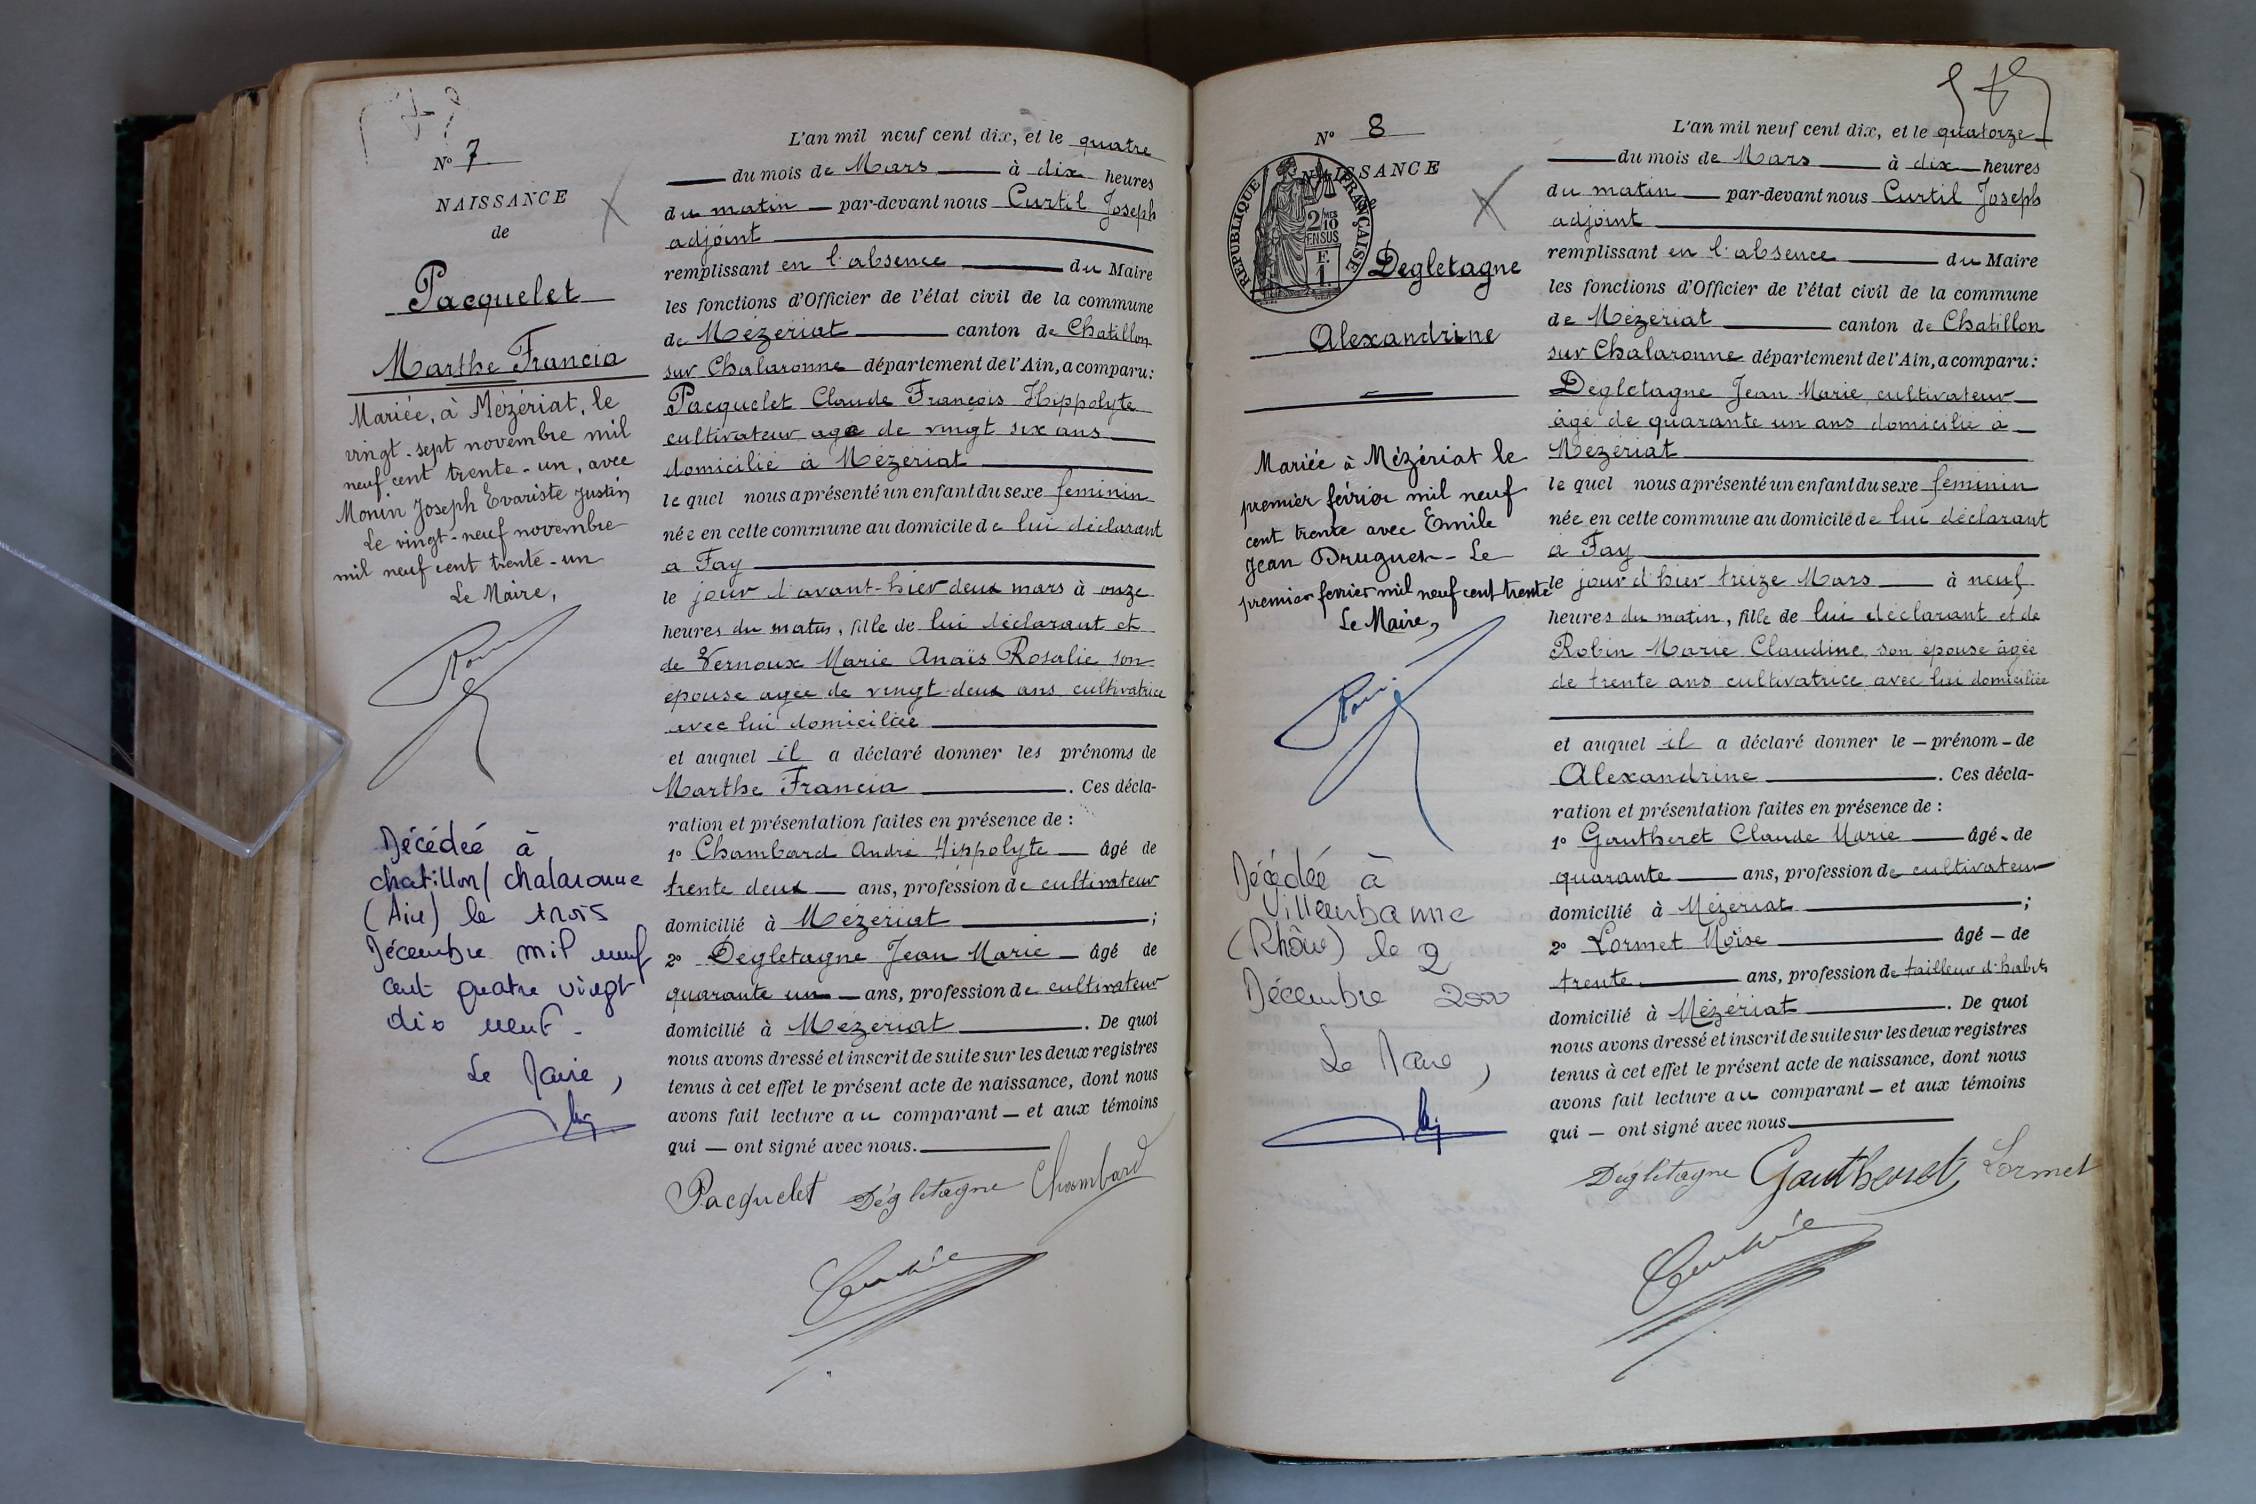 N° 7
NAISSANCE
de
Pacquelet
Marthe Francia
Mariée, à Mézériat, le
vingt-sept novembre mil
neuf cent trente-un, avec
Monin Joseph Evariste Justin,
Le vingt-neuf novembre
mil neuf cent trente-un
Le Maire,
Décédée à
chatillon/chalaronne
(Ain) le trois
Décembre mil neuf
cent quatre vingt
dix neuf.
Le Maire,
L'an mil neuf cent dix, et le quatre
du mois de Mars à dix heures
du matin par-devant nous Curtil Joseph
adjoint
remplissant en l'absence du Maire
les fonctions d'Officier de l'état civil de la commune
de Mézériat canton de Chatillon
sur Chalaronne département de l'Ain, a comparu:
Pacquelet Claude François Hippolyte
cultivateur age de vingt six ans
domicilié à Mézériat
le quel nous a présenté un enfant du sexe féminin
née en cette commune au domicile de lui déclarant
a Fay
le jour d'avant-hier deux mars à onze
heures du matin, fille de lui déclarant et
de Vernoux Marie Anaïs Rosalie son
épouse agée de vingt deux ans cultivatrice
avec lui domiciliée
et auquel il a déclaré donner les prénoms de
Marthe Francia. Ces décla-
ration et présentation faites en présence de :
1° Chambard André Hippolyte âgé de
trente deux ans, profession de cultivateur
domicilié à Mézériat ;
2° Dégletagne Jean Marie âgé de
quarante un ans, profession de cultivateur
domicilié à Mézériat. De quoi
nous avons dressé et inscrit de suite sur les deux registres
tenus à cet effet le présent acte de naissance, dont nous
avons fait lecture au comparant et aux témoins
qui ont signé avec nous.
Pacquelet Dégletagne Chambard
N° 8
NAISSANCE
REPUBLIQUE FRANÇAISE
2/10 MES
EN SUS
F.
1.
Dégletagne
Alexandrine
Mariée à Mézériat le
premier février mil neuf
cent trente avec Emile
Jean Druguet - Le
premier fevrier mil neuf cent trente
Le Maire,
Décédée à
Villeurbanne
(Rhône) le 2
Décembre 2000
Le Maire,
L'an mil neuf cent dix, et le quatorze
du mois de Mars à dix heures
du matin par-devant nous Curtil Joseph
adjoint
remplissant en l'absence du Maire
les fonctions d'Officier de l'état civil de la commune
de Mézériat canton de Chatillon
sur Chalaronne département de l'Ain, a comparu:
Dégletagne Jean Marie cultivateur
âgé de quarante un ans domicilié à
Mézériat
le quel nous a présenté un enfant du sexe féminin
née en cette commune au domicile de lui déclarant
à Fay
le jour d'hier treize Mars à neuf
heures du matin, fille de lui déclarant et de
Robin Marie Claudine son épouse âgée
de trente ans cultivatrice avec lui domiciliée
et auquel il a déclaré donner le - prénom - de
Alexandrine. Ces décla-
ration et présentation faites en présence de :
1° Gautheret Claude Marie âgé de
quarante ans, profession de cultivateur
domicilié à Mézériat ;
2° Lormet Moïse âgé - de
trente ans, profession de tailleur d'habits
domicilié à Mézériat. De quoi
nous avons dressé et inscrit de suite sur les deux registres
tenus à cet effet le présent acte de naissance, dont nous
avons fait lecture au comparant - et aux témoins
qui - ont signé avec nous
Dégletagne Gautheret Lormet